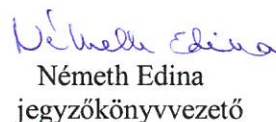 Németh Edina
Németh Edina
jegyzőkönyvvezető